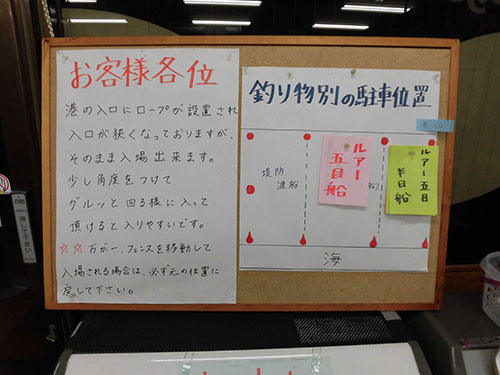 お客様各位
港の入口にロープが設置され
入口が狭くなっておりますが、
そのまま入場出来ます。
少し角度をつけて
グルッと回る様に入って
頂けると入りやすいです。
☆☆万が一、フェンスを移動して
入場される場合は、必ず元の位置に
戻して下さい。
釣り物別の駐車位置
堤防
渡船
ルアー
五目船
ルアー五目
半日船
海
自動